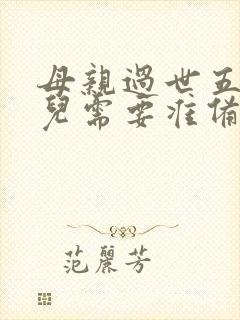 母親過世五
兒需要准備
范麗芳